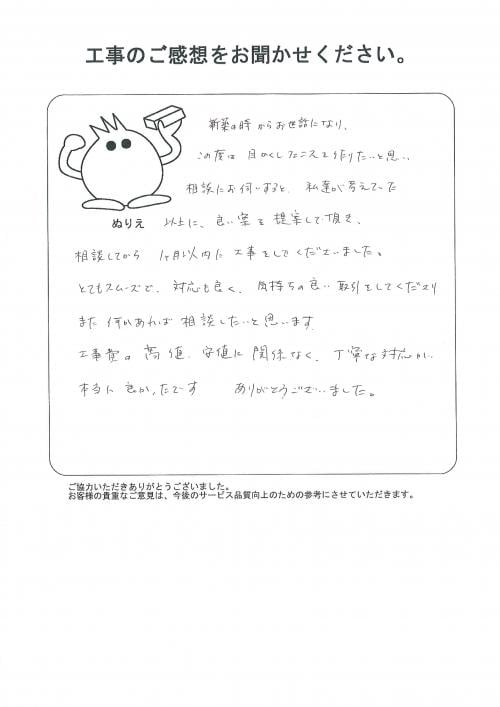 工事のご感想をお聞かせください。
新築の時からお世話になり、
この度は 目かくしフェンスを作りたいと思い、
相談にお伺いすると、私達が考えていた
ぬりえ
以上に、良い案を提案して頂き、
相談してから 1ヶ月以内に工事をしてくださいました。
とてもスムーズで、対応も良く、気持ちの良い取引をしてくださり
また何かあれば相談したいと思います
工事費の高値、安値に関係なく、丁寧な対応が、
本当に良かったです ありがとうございました。
ご協力いただきありがとうございました。
お客様の貴重なご意見は、今後のサービス品質向上のための参考にさせていただきます。